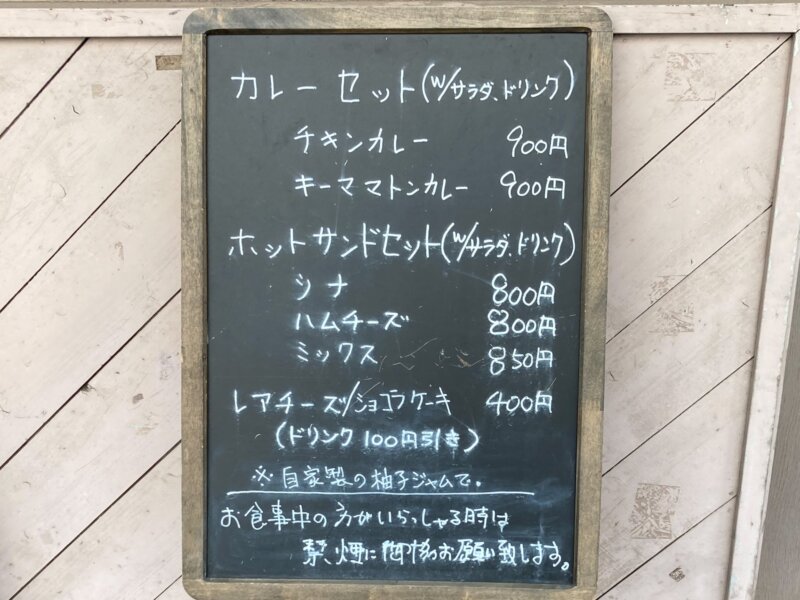 カレーセット(w/サラダ、ドリンク)
チキンカレー 900円
キーママトンカレー 900円
ホットサンドセット(w/サラダ、ドリンク)
シナ 800円
ハムチーズ 800円
ミックス 850円
レアチーズ/ショコラケーキ 400円
(ドリンク100円引き)
※自家製の柚子ジャムで。
お食事中の方がいらっしゃる時は
禁煙に御協力お願い致します。